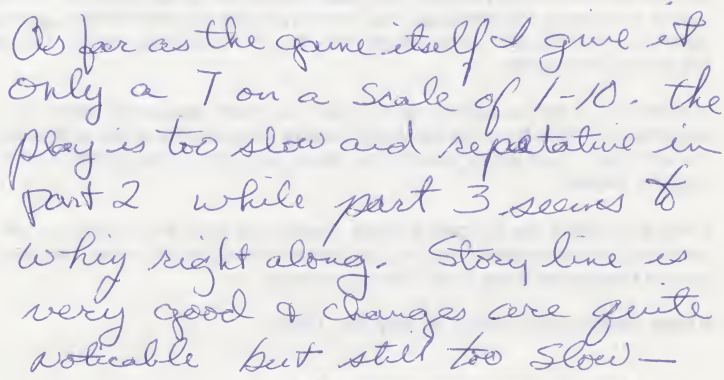 As far as the game itself I give it
only a 7 on a scale of 1-10. the
play is too slow and repatative in
part 2 while part 3 seems to
whiz right along. Story line is
very good & changes are quite
noticable but still too slow—